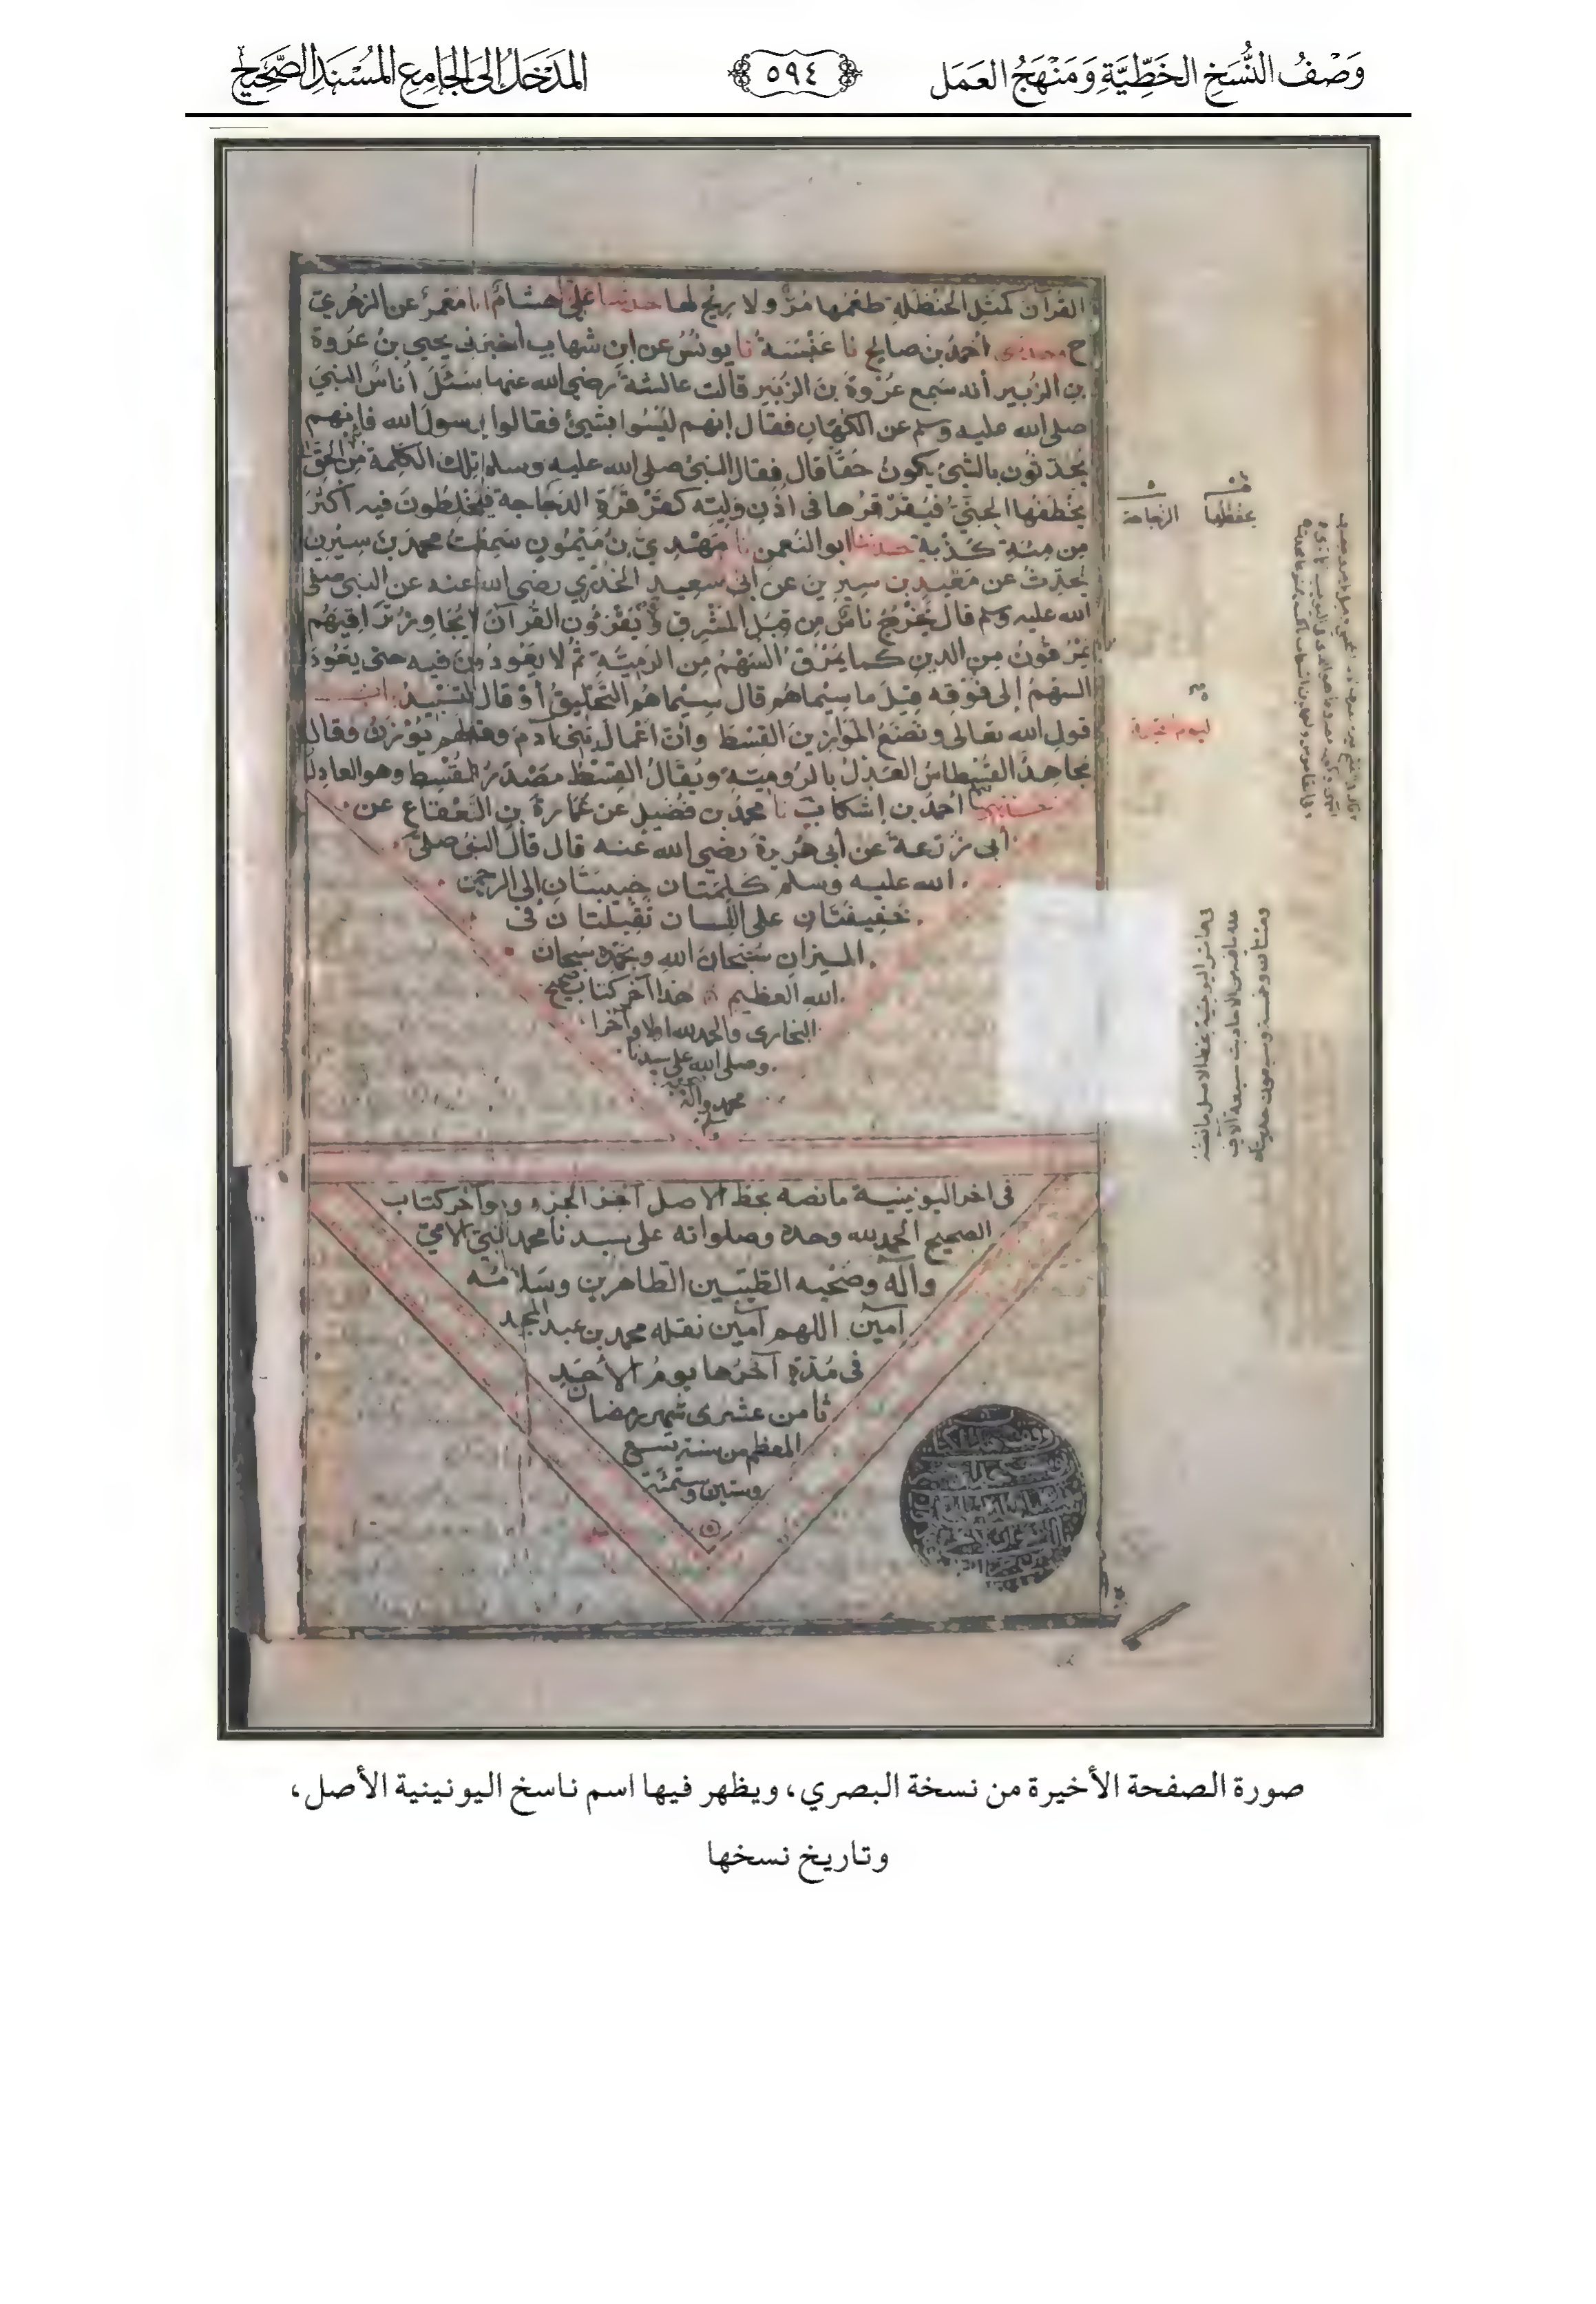 وَصْفُ النُّسَخِ الخَطِّيَّةِ وَمَنْهَجُ العَمَلِ
٥٩٤
المَدْخَلُ إِلَى الجَامِعِ المُسْنَدِ الصَّحِيحِ
القرآن كمثل الحنظلة طعمها مرّ ولا ريح لها حدثنا علي هشام انا معمر عن الزهري
ح وحدثني أحمد بن صالح نا عنبسة نا يونس عن ابن شهاب أخبرني يحيى بن عروة
بن الزبير أنه سمع عروة بن الزبير قالت عائشة رضي الله عنها سئل أناس النبي
صلى الله عليه وسلم عن الكهان فقال إنهم ليسوا بشيئ فقالوا يرسول الله فإنهم
يحدثون بالشئ يكون حقا قال فقال النبي صلى الله عليه وسلم تلك الكلمة من الحق
يخطفها الجني فيقرقرها في أذن وليه كقرقرة الدجاجة فيخلطون فيه أكثر
من مئة كذبة حدثنا ابو النعمن نا مهدي بن ميمون سمعت محمد بن سيرين
يحدث عن معبد بن سيرين عن أبي سعيد الخدري رضي الله عنه عن النبي صلى
الله عليه وسلم قال يخرج ناس من قبل المشرق ويقرؤون القرآن لا يجاوز تراقيهم
يمرقون من الدين كما يمرق السهم من الرمية ثم لا يعودون فيه حتى يعود
السهم إلى فوقه قيل ما سيماهم قال سيماهم التحليق أو قال التسبيد باب
قول الله تعالى ونضع الموازين القسط وأن أعمال بني آدم وقولهم يوزن وقال
مجاهد القسطاس العدل بالرومية ويقال القسط مصدر المقسط وهو العادل
أحمد بن إشكاب نا محمد بن فضيل عن عمارة بن القعقاع عن
أبي زرعة عن أبي هريرة رضي الله عنه قال قال النبي صلى
الله عليه وسلم كلمتان حبيبتان إلى الرحمن
خفيفتان على اللسان ثقيلتان في
الميزان سبحان الله وبحمده سبحان
الله العظيم هذا آخر كتاب صحيح
البخاري والحمد لله اولا وآخرا
وصلى الله على سيدنا
محمد وآله
وسلم
يخفظها الزجاجة
ليوم القيمة
في آخر اليونينية بخط الاصل ما نصه
عدة ما فيه من الاحاديث سبعة آلاف
ومئتان وخمسة وسبعون حديثا
في اخر اليونينية ما نصه بخط الاصل آخر الجزء وهو آخر كتاب
الصحيح الحمد لله وحده وصلواته على سيدنا محمد النبي الامي
وآله وصحبه الطيبين الطاهرين وسلامه
آمين اللهم آمين نقله محمد بن عبد المجيد
في مدة آخرها يوم الأحد
ثامن عشري شهر رمضان
المعظم من سنة تسع
وستين وستمئة
صورة الصفحة الأخيرة من نسخة البصري، ويظهر فيها اسم ناسخ اليونينية الأصل،
وتاريخ نسخها